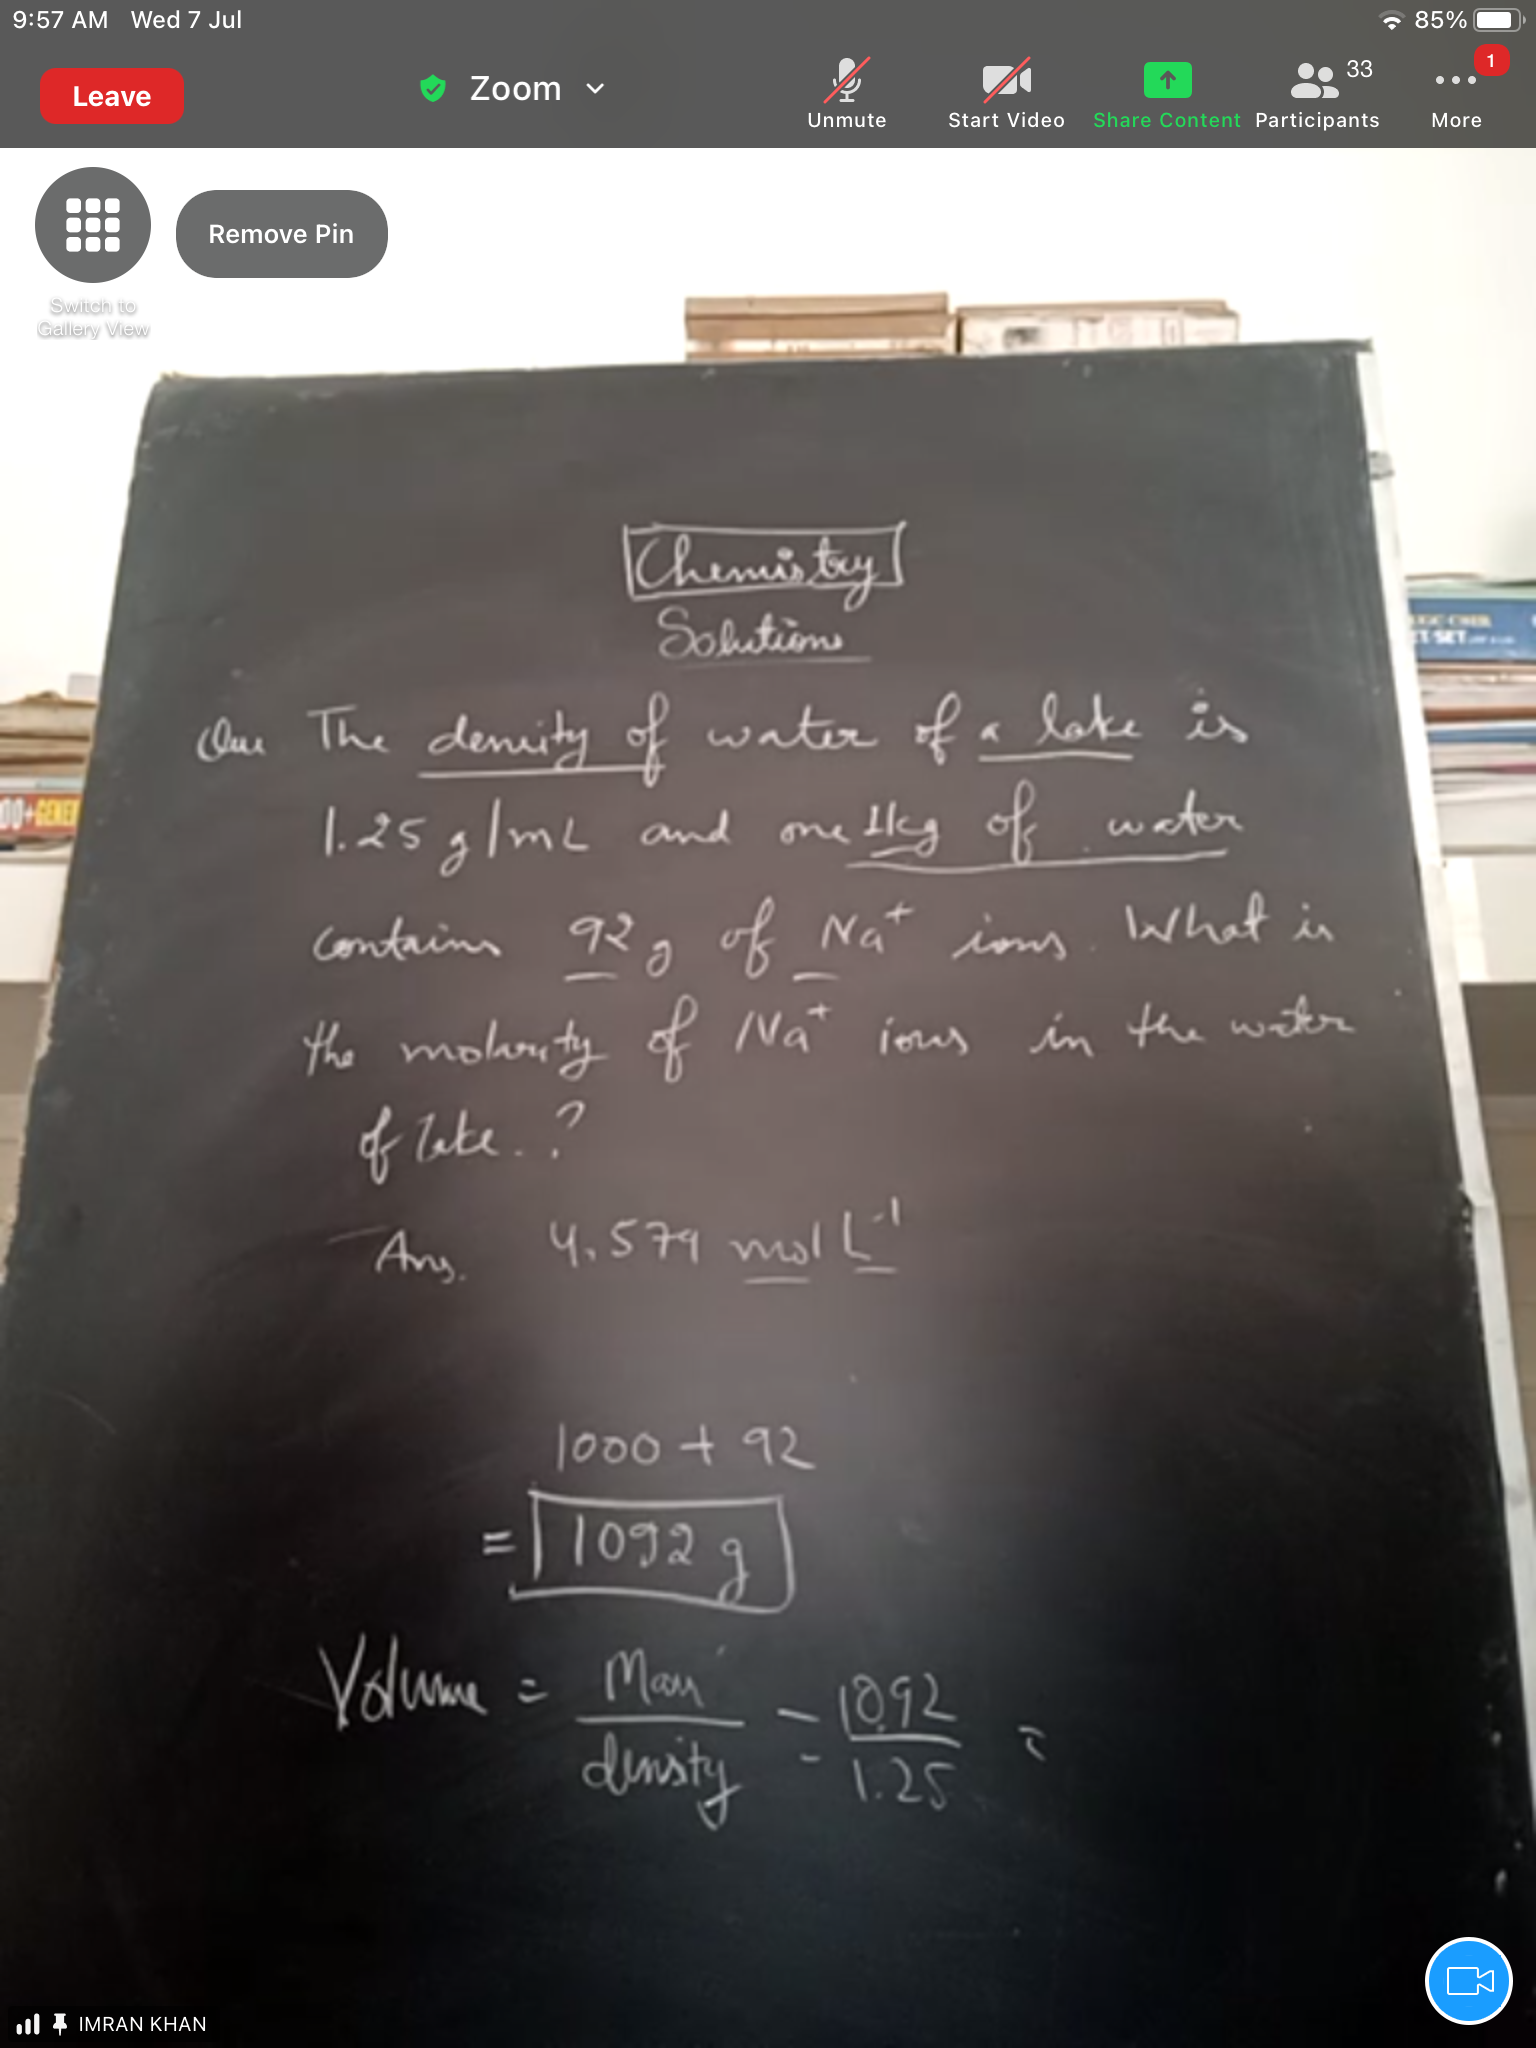 9:57 AM Wed 7 Jul
85%
Leave
Zoom
Unmute
Start Video
Share Content
33
Participants
1
More
Remove Pin
Switch to
Gallery View
Chemistry
Solutions
Que The density of water of a lake is
1.25 g/mL and one 1kg of water
contains 92 g of Na⁺ ions. What is
the molarity of Na⁺ ions in the water
of lake..?
Ans. 4.579 mol L⁻¹
1000 + 92
= 1092 g
Volume = Mass/density = 1092/1.25 =
IMRAN KHAN